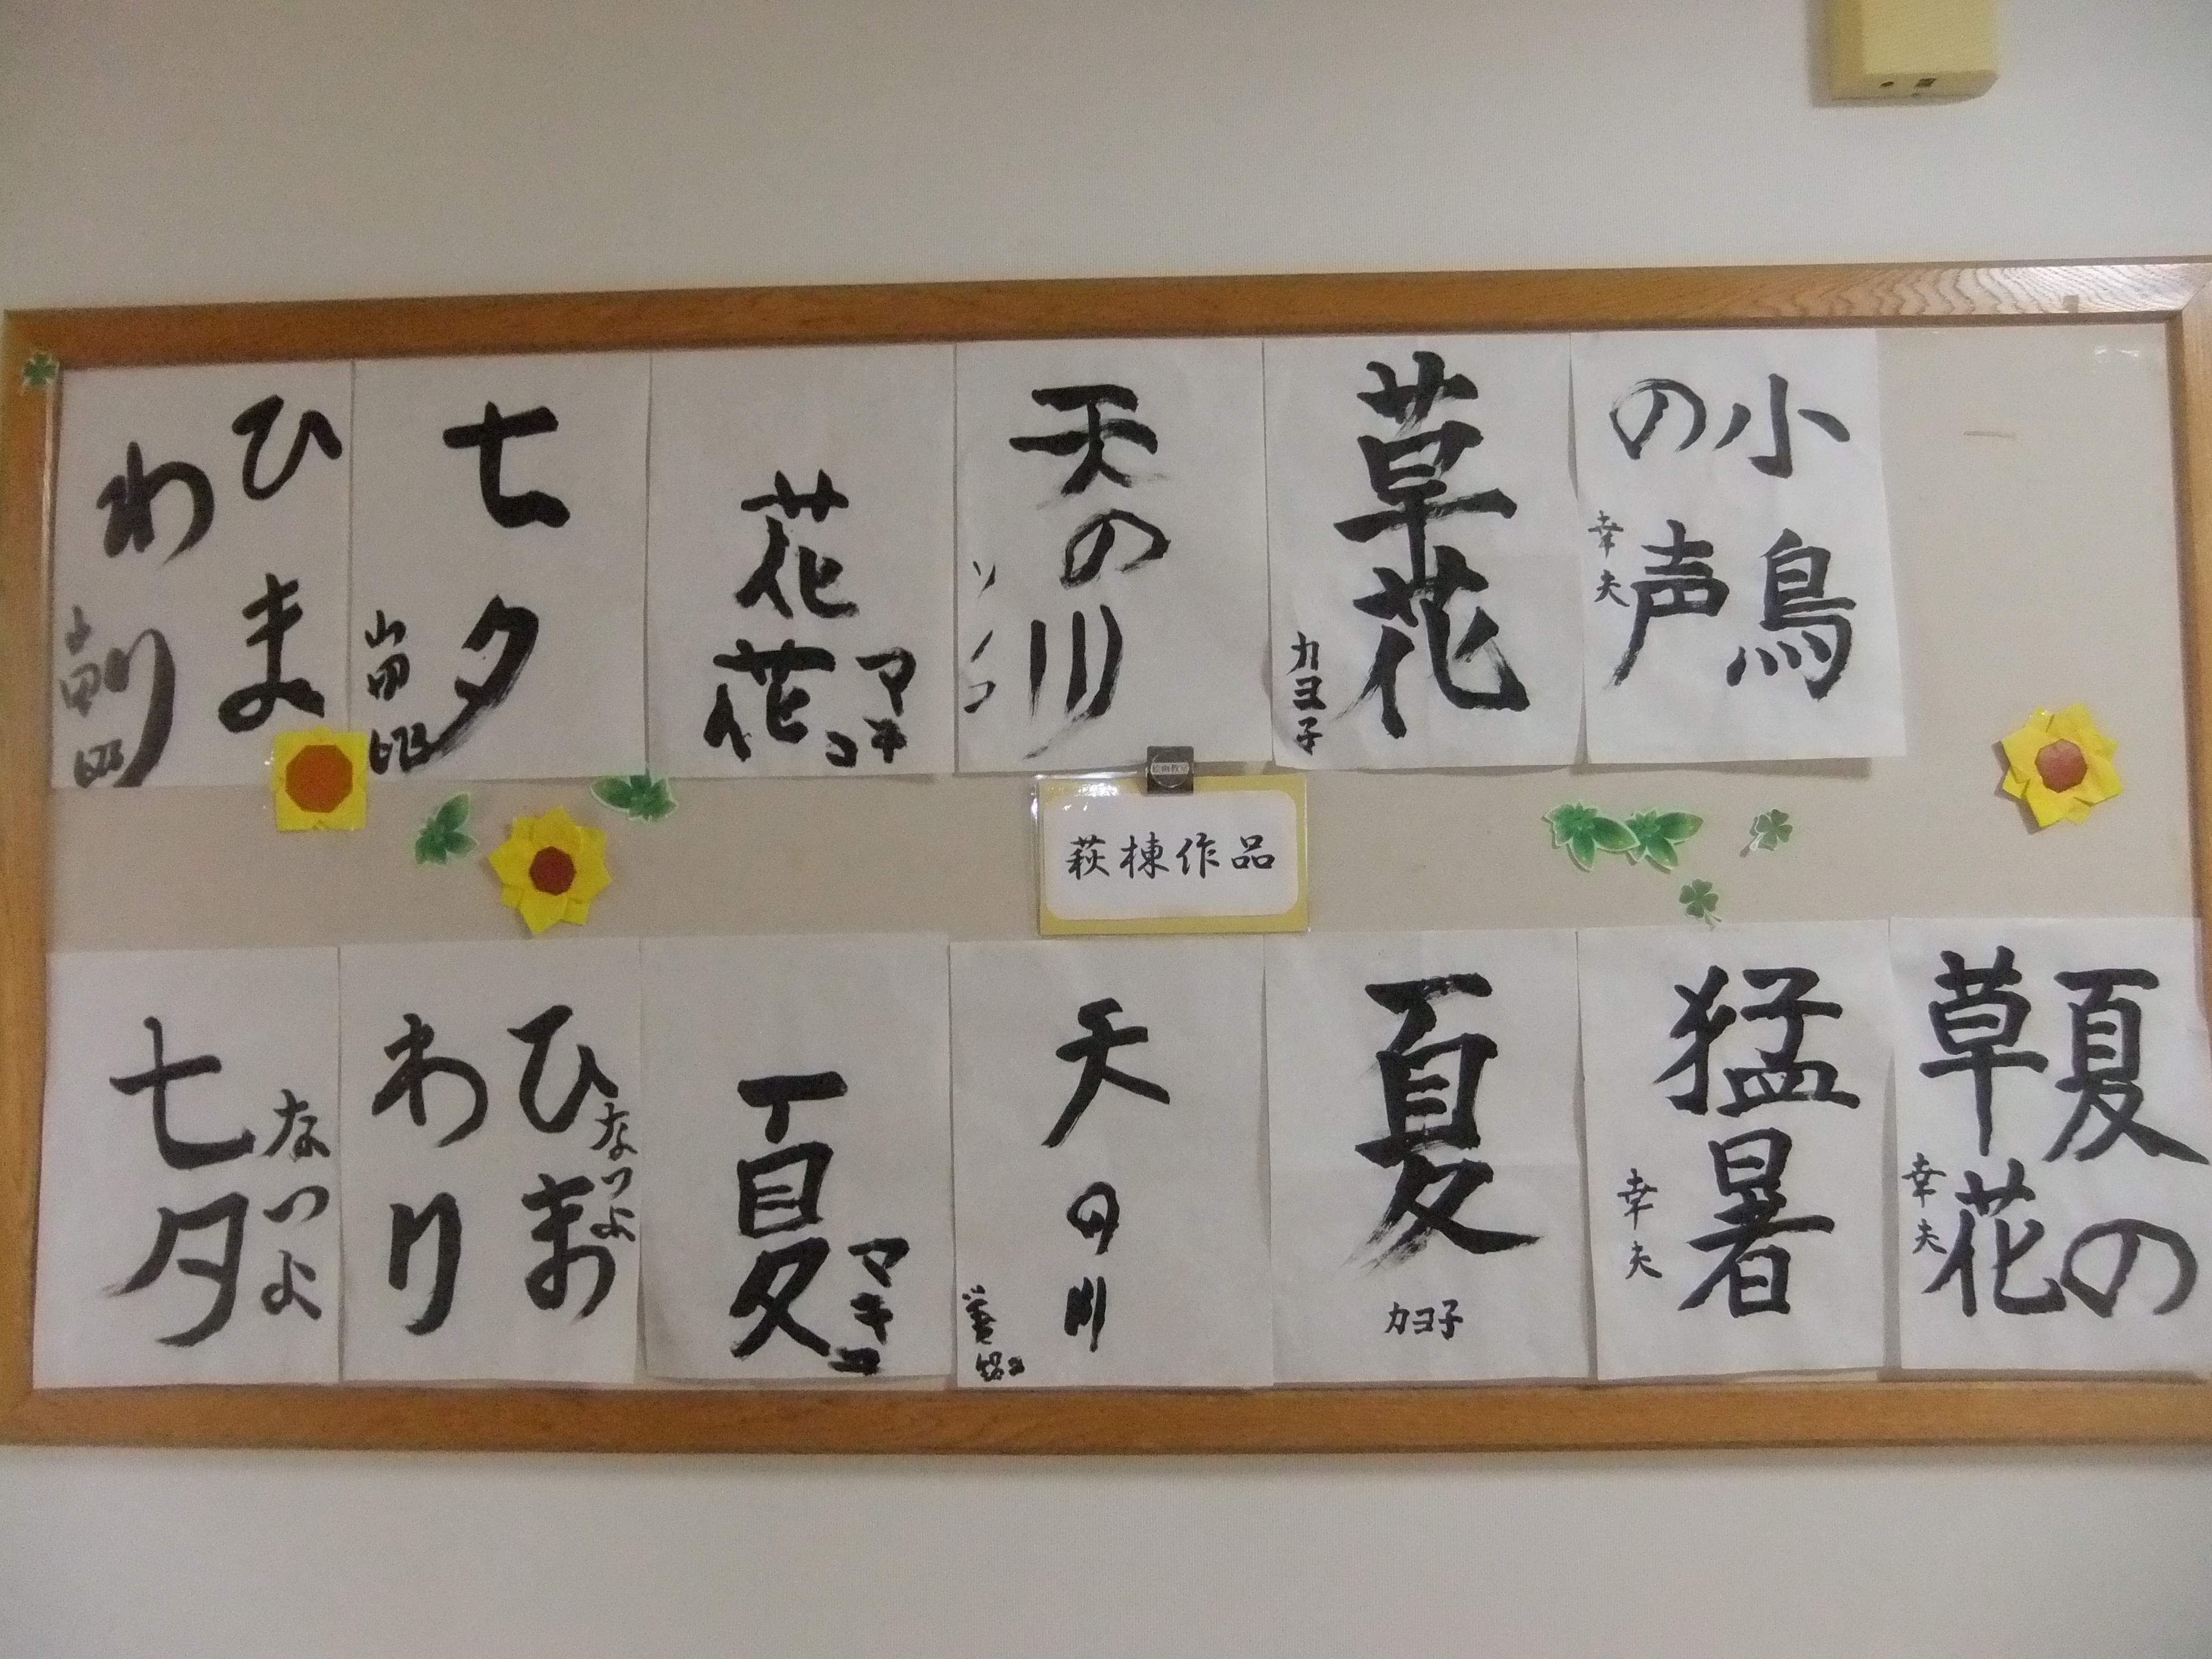 小鳥
の声
幸夫
草花
カヨ子
天の川
花
花
マキ
コ
七夕
山田
ひま
わり
萩棟作品
夏の
草花
幸夫
猛暑
幸夫
夏
カヨ子
天の川
夏
マキ
コ
ひま
わり
なつよ
七夕
なつよ